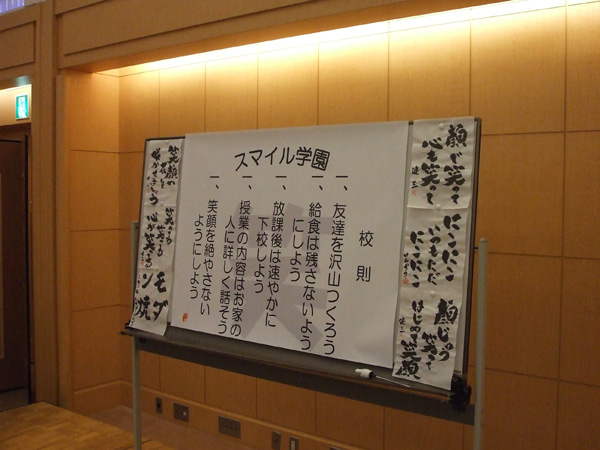 スマイル学園
校則
一、友達を沢山つくろう
一、給食は残さないよう
にしよう
一、放課後は速やかに
下校しよう
一、授業の内容はお家の
人に詳しく話そう
一、笑顔を絶やさない
ようにしよう
顔で笑って
心も笑って
にこにこ
いつもにこにこ
にこにこ
顔じゅう
笑って
はじめて笑顔
笑顔の
花を
咲かせましょう
笑える
心が笑える
モダ
ン焼